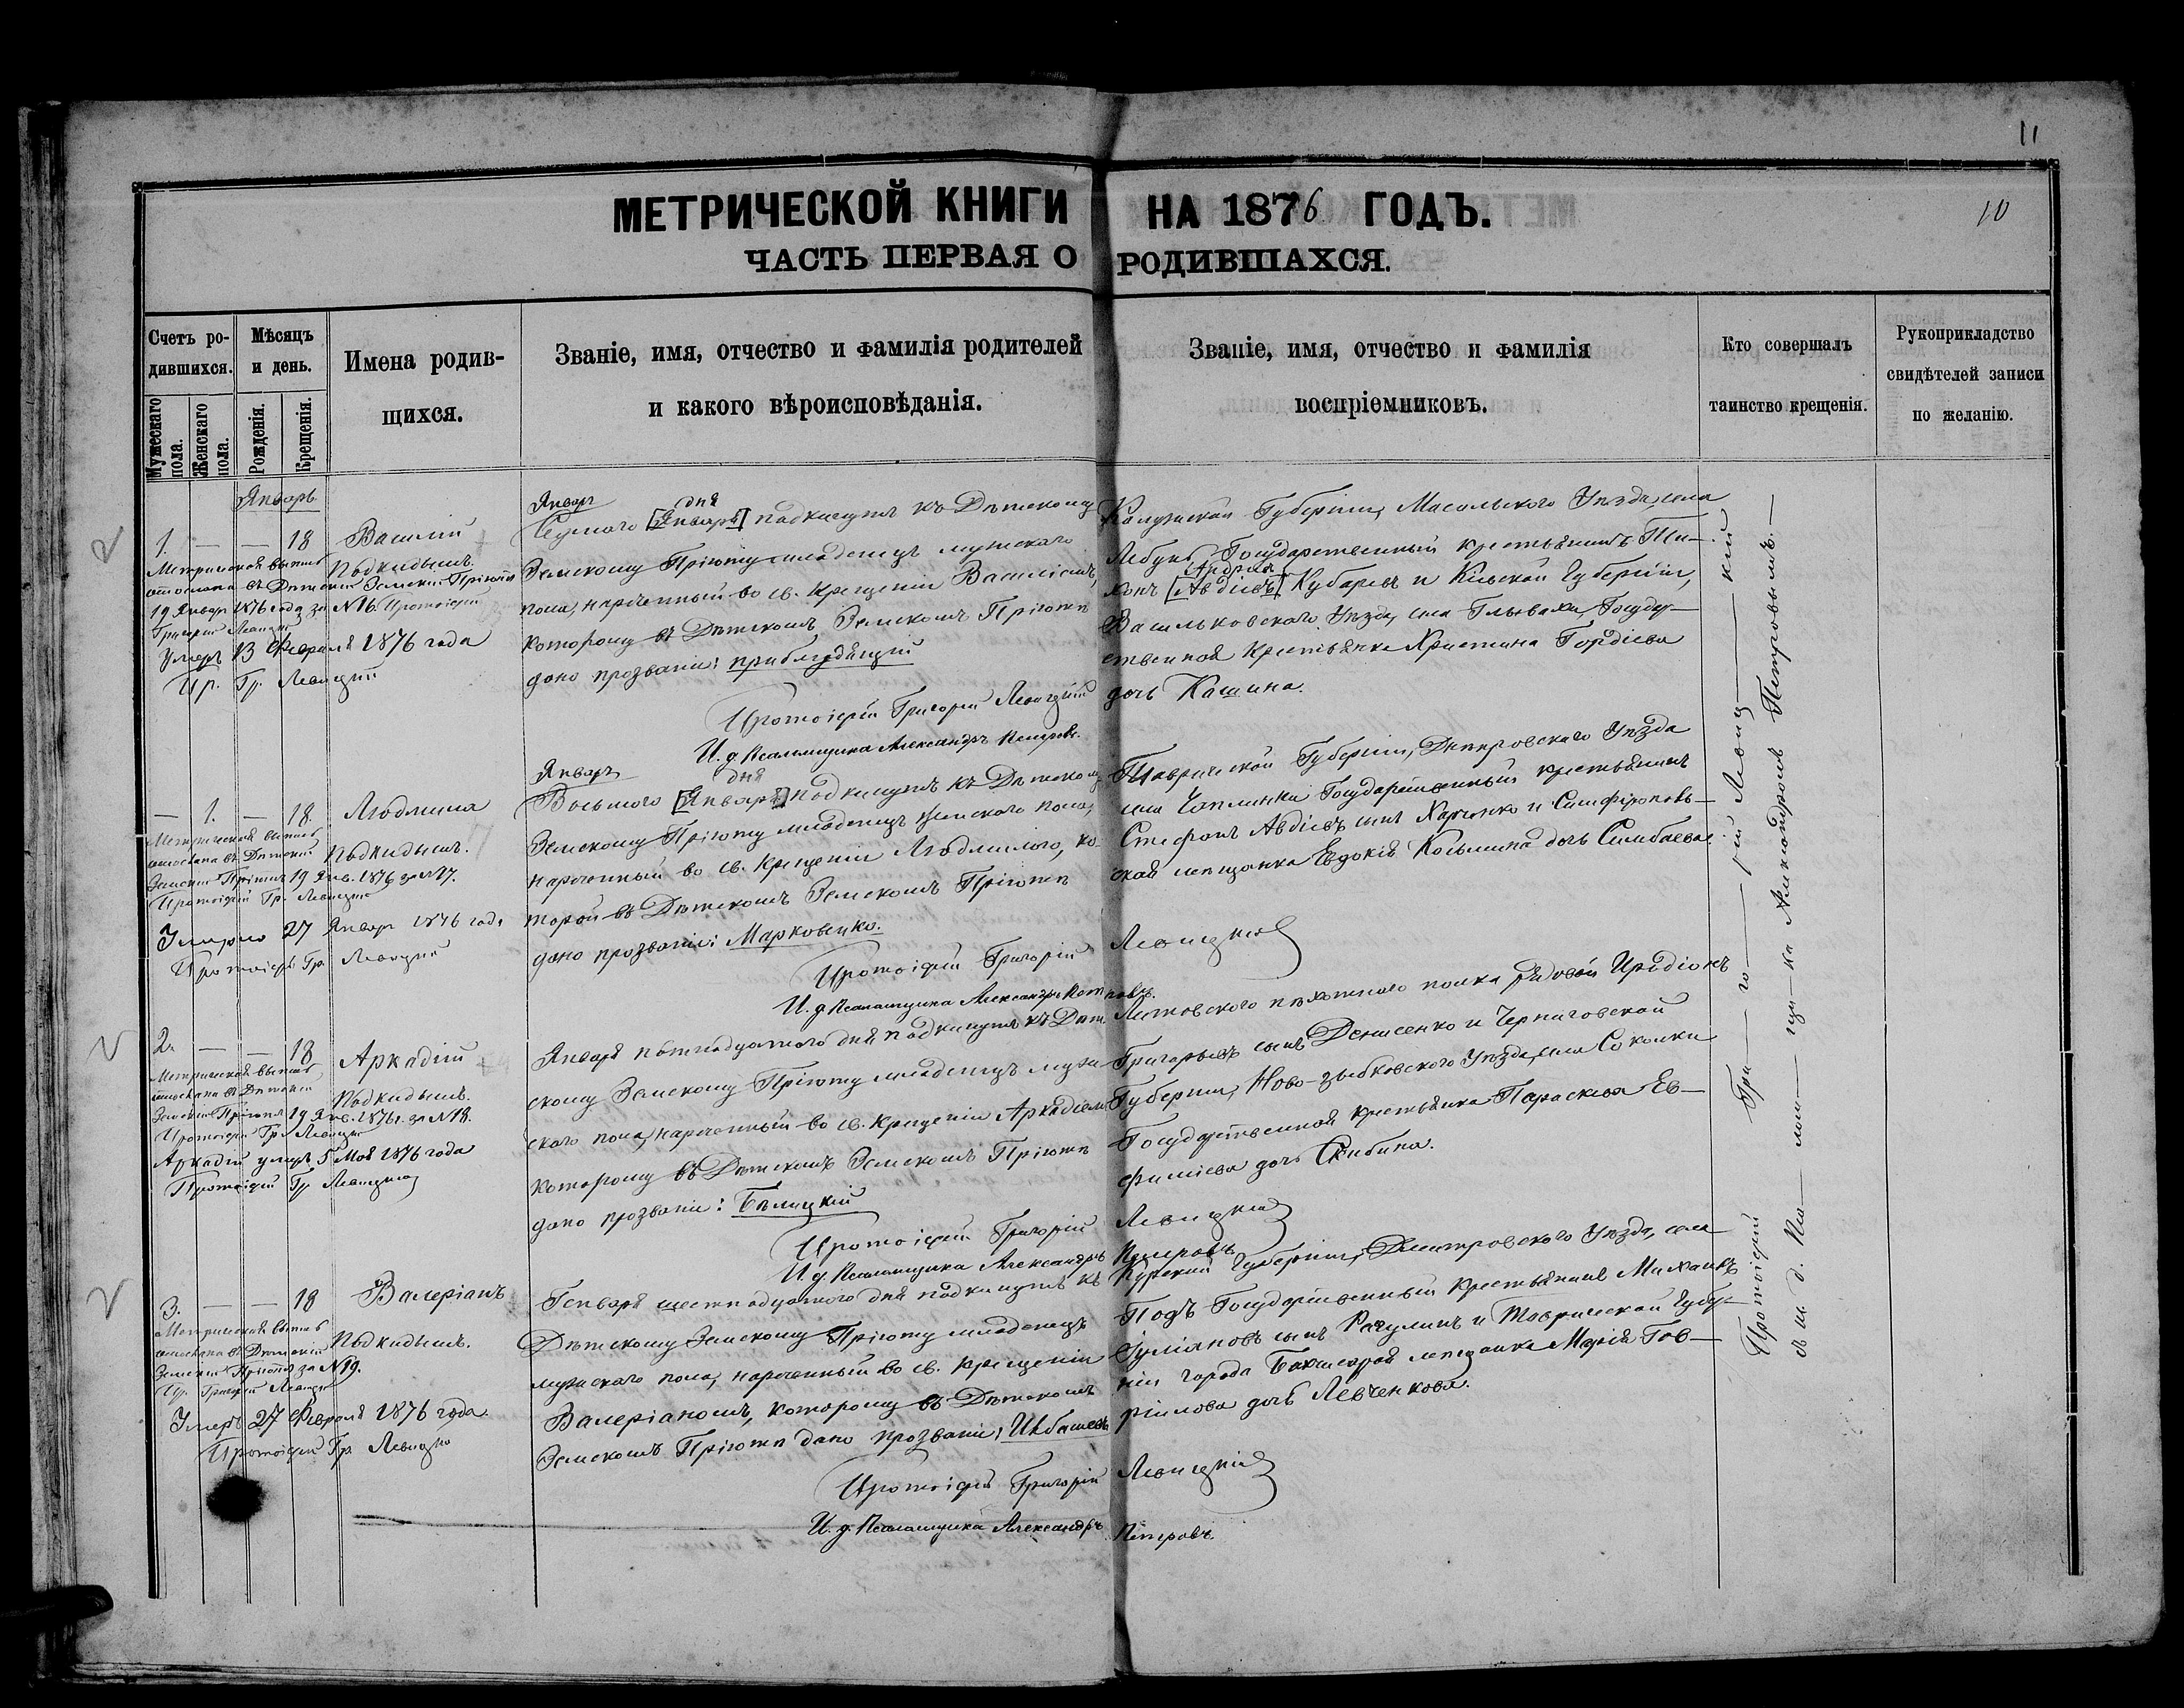 11
10
МЕТРИЧЕСКОЙ КНИГИ НА 1876 ГОДЪ.
ЧАСТЬ ПЕРВАЯ О РОДИВШАХСЯ.
Счетъ ро-
дившихся.
Мужескаго пола.
Женскаго пола.
Мѣсяцъ
и день.
Рожденія.
Крещенія.
Имена родив-
щихся.
Званіе, имя, отчество и фамилія родителей
и какого вѣроисповѣданія.
Званіе, имя, отчество и фамилія
воспріемниковъ.
Кто совершалъ
таинство крещенія.
Рукоприкладство
свидѣтелей записи
по желанію.
Январь
1. — — 18 Василій
Подкидышъ.
Метрическая выпись
отослана въ Дѣтскій Земскій Пріютъ
19 Январ 1876 года за №16. Протоіерей
Григорій Левицкій
Умеръ 13 Февраля 1876 года
Пр. Гр. Левицкій
Январ дня
Седмого [Январь] подкинутъ къ Дѣтскому
Земскому Пріюту младенецъ мужскаго
пола, нареченный во св. Крещеніи Василіемъ,
которому въ Дѣтскомъ Земскомъ Пріютѣ
дано прозваніе:
Протоіерей Григорій Левицкій
И. д. Псаломщика Александръ Петровъ.
Калужской Губерніи, Уѣзда, села
Государственный крестьянинъ Ти-
Андреев
хонъ [Авдіевъ] Кубаревъ и Кіевской Губерніи,
Васильковскаго Уѣзда, села Глевахи, Госуда-
ственная Крестьянка Христина Гордіева
дочь Кашина.
— 1. — 18. Людмила
Подкидышъ.
Метрическая выпись
отослана въ Дѣтскій
Земскій Пріютъ 19 Янв. 1876 за №17.
Протоіерей Гр. Левицкій
Умерла 27 Январ 1876 года
Протоіерей Гр. Левицкій
Январ дня
Восьмого [Январь] подкинутъ къ Дѣтскому
Земскому Пріюту младенецъ женскаго пола,
нареченный во св. Крещеніи Людмилою, ко-
торой въ Дѣтскомъ Земскомъ Пріютѣ
дано прозваніе: Марковенко.
Протоіерей Григорій Левицкій
И. д. Псаломщика Александръ Петровъ.
Таврической Губерніи, Днѣпровскаго Уѣзда
села Чаплинки Государственный крестьянинъ
Стефанъ Авдіевъ сынъ Харченко и Симферополь-
ская мещанка Евдокія Косьмина дочь Симбаева.
2. — — 18 Аркадій
Подкидышъ.
Метрическая выпись
отослана въ Дѣтскій
Земскій Пріютъ 19 Янв. 1876 г. за №18.
Протоіерей Гр. Левицкій
Аркадій умеръ 5 Мая 1876 года
Протоіерей Гр Левицкій
Января пятнадцатого дня подкинутъ къ Дѣт-
скому Земскому Пріюту младенецъ муже-
скаго пола, нареченный во св. Крещеніи Аркадіемъ
которому въ Дѣтскомъ Земскомъ Пріютѣ
дано прозваніе: Бѣлицкій
Протоіерей Григорій Левицкій
И. д. Псаломщика Александръ Петровъ
Литовского пѣхотнаго полка рядовой Иродіонъ
Григорьевъ сынъ Денисенко и Черниговской
Губерніи, Ново-зыбковскаго Уѣзда, села Соколки
Государственная крестьянка Параскева Ев-
фиміева дочь Скибина.
3. — — 18 Валеріанъ
Подкидышъ.
Метрическая выпись
отослана въ Дѣтскій
Земскій Пріютъ за №19.
Пр. Григорій Левицкій
Умеръ 27 Февраля 1876 года.
Протоіерей Гр. Левицкій
Генваря шестнадцатого дня подкинутъ къ
Дѣтскому Земскому Пріюту младенецъ
мужескаго пола, нареченный во св. Крещеніи
Валеріаномъ, которому въ Дѣтскомъ
Земскомъ Пріютѣ дано прозваніе:
Протоіерей Григорій Левицкій
И. д. Псаломщика Александръ Петровъ.
Курской Губерніи, Дмитровскаго Уѣзда, села
Государственный Крестьянинъ Михаилъ
сынъ и Таврической Губе-
ніи города Бахчисарая мещанка Марія Гав-
риилова дочь Левченкова.
Протоіерей Гри—го—рій Левиц—кій
съ и. д. Пса—лом—щи—ка Александромъ Петровымъ.—